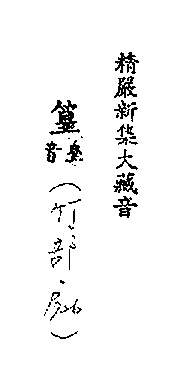 精嚴新集大藏音
篁
音
(竹部、